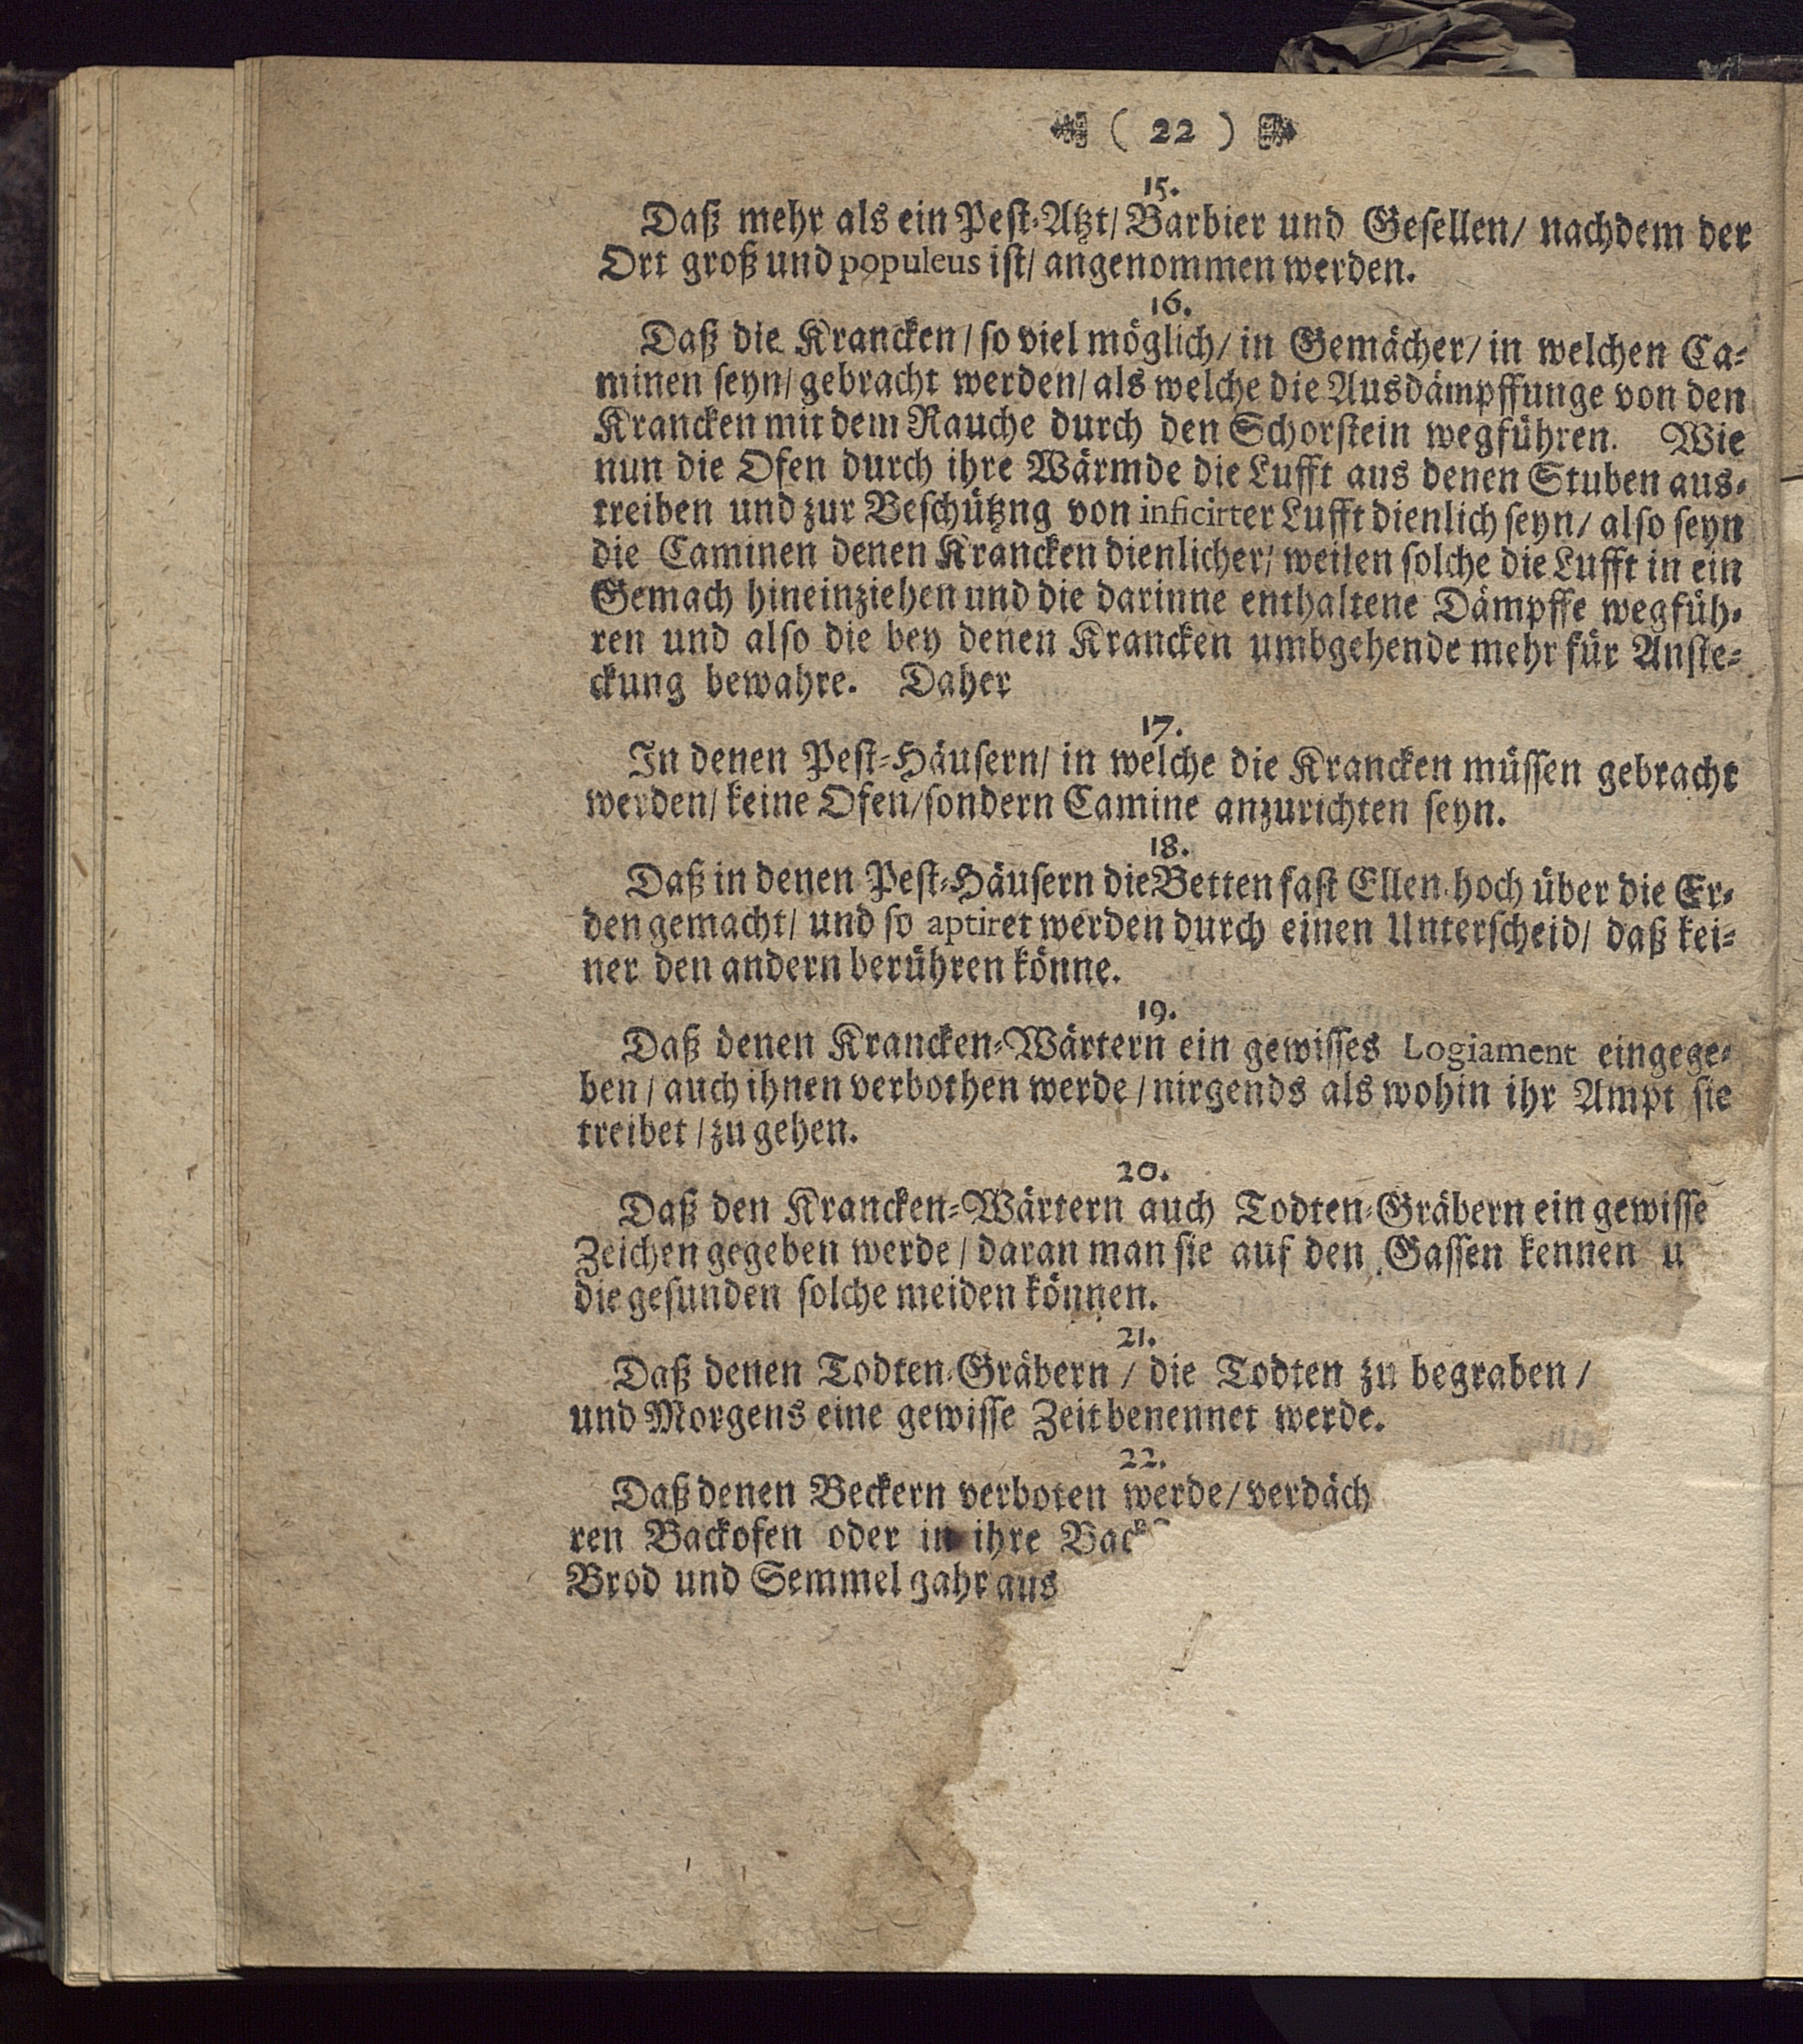 ( 22 )
15.
Daß mehr als ein Pest-Atzt/ Barbier und Gesellen/ nachdem der
Ort groß und populeus ist/ angenommen werden.
16.
Daß die Krancken/ so viel möglich/ in Gemächer/ in welchen Ca-
minen seyn/ gebracht werden/ als welche die Ausdämpffunge von den
Krancken mit dem Rauche durch den Schorstein wegführen. Wie
nun die Ofen durch ihre Wärmde die Lufft aus denen Stuben aus-
treiben und zur Beschützng von inficirter Lufft dienlich seyn/ also seyn
die Caminen denen Krancken dienlicher/ weilen solche die Lufft in ein
Gemach hineinziehen und die darinne enthaltene Dämpffe wegfüh-
ren und also die bey denen Krancken umbgehende mehr für Anste-
ckung bewahre. Daher
17.
In denen Pest-Häusern/ in welche die Krancken müssen gebracht
werden/ keine Ofen/ sondern Camine anzurichten seyn.
18.
Daß in denen Pest-Häusern die Betten fast Ellen hoch über die Er-
den gemacht/ und so aptiret werden durch einen Unterscheid/ daß kei-
ner den andern berühren könne.
19.
Daß denen Krancken-Wärtern ein gewisses Logiament eingege-
ben/ auch ihnen verbothen werde/ nirgends als wohin ihr Ampt sie
treibet/ zu gehen.
20.
Daß den Krancken-Wärtern auch Todten-Gräbern ein gewisse
Zeichen gegeben werde/ daran man sie auf den Gassen kennen u
die gesunden solche meiden können.
21.
Daß denen Todten-Gräbern/ die Todten zu begraben/
und Morgens eine gewisse Zeit benennet werde.
22.
Daß denen Beckern verboten werde/ verdäch
ren Backofen oder in ihre Back
Brod und Semmel gahr aus